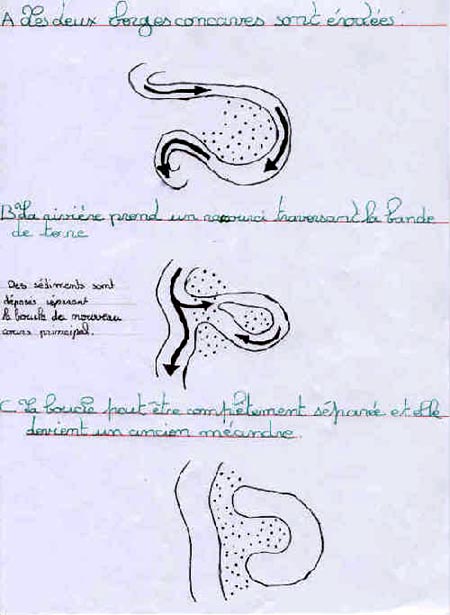 A Les deux berges concaves sont érodées :
B La rivière prend un racourci traversant la bande
de terre
Des sédiments sont
déposés séparant
la boucle de nouveau
cours principal.
C. La boucle peut être complètement séparée et elle
devient un ancien méandre.